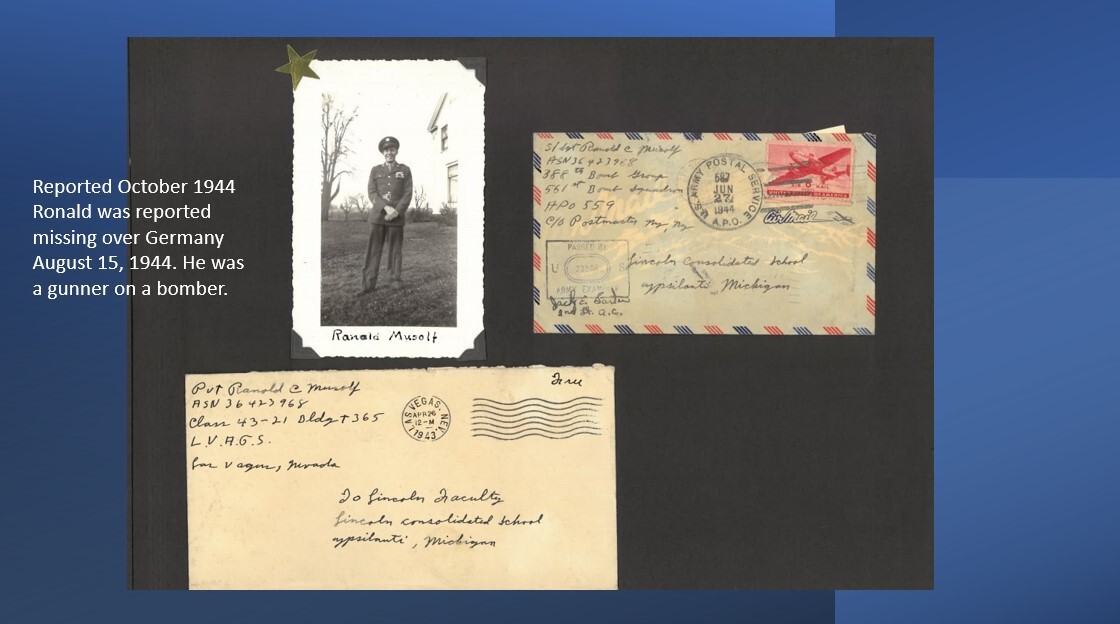 Reported October 1944
Ronald was reported
missing over Germany
August 15, 1944. He was
a gunner on a bomber.
Ranald Musolf
S/Sgt Ranald C Musolf
ASN 36423968
388th Bomb Group
561st Bomb Squadron
APO 559
C/o Postmaster Ny, Ny
U.S. ARMY POSTAL SERVICE
587
JUN
27
1944
A.P.O.
Air Mail
Lincoln Consolidated School
ypsilanti Michigan
PASSED BY
U S
ARMY EXAMINER
2nd Lt. A.C.
Pvt Ranold C Musolf
ASN 36423968
Class 43-21 Bldg T 365
L.V.A.G.S.
Las Vegas, Nevada
LAS VEGAS, NEV.
APR 26
12-M
1943
Free
To Lincoln Faculty
Lincoln consolidated school
ypsilanti, Michigan